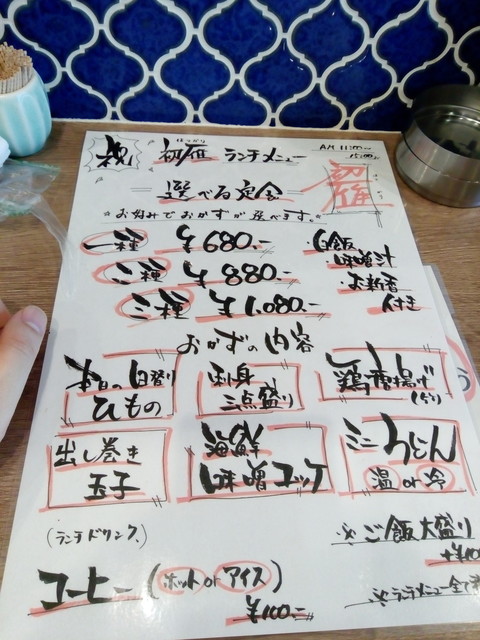 祝 初雁 ランチメニュー AM 11:00〜15:00
はつかり
選べる定食
初雁
☆お好みでおかずが選べます。☆
一種 ¥680.- ・ご飯
・味噌汁
二種 ¥880.- ・お新香
付き
三種 ¥1,080.-
おかずの内容
本日の日替り
ひもの
刺身
三点盛り
鶏唐揚げ
出し巻き
玉子
海鮮
味噌ユッケ
ミニうどん
温or冷
(ランチドリンク)
※ご飯大盛り
+¥100
コーヒー(ホットorアイス)
¥100.-
※ランチメニュー全て